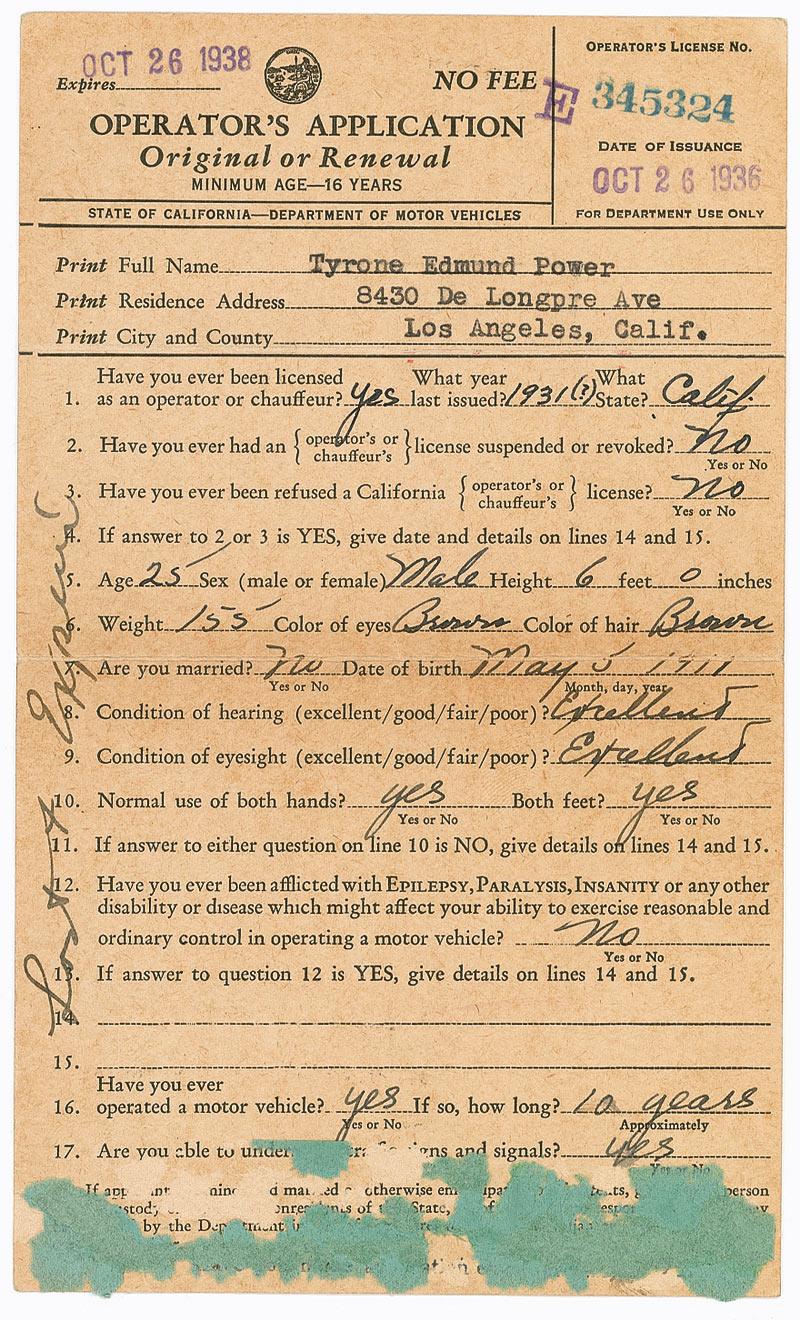 OCT 26 1938
Expires
NO FEE
OPERATOR'S APPLICATION
Original or Renewal
MINIMUM AGE—16 YEARS
STATE OF CALIFORNIA—DEPARTMENT OF MOTOR VEHICLES
OPERATOR'S LICENSE No.
E 345324
DATE OF ISSUANCE
OCT 26 1936
FOR DEPARTMENT USE ONLY
Print Full Name Tyrone Edmund Power
Print Residence Address 8430 De Longpre Ave
Print City and County Los Angeles, Calif.
Have you ever been licensed What year What
1. as an operator or chauffeur? yes last issued? 1931(?) State? Calif.
2. Have you ever had an { operator's or chauffeur's } license suspended or revoked? No
Yes or No
3. Have you ever been refused a California { operator's or chauffeur's } license? No
Yes or No
4. If answer to 2 or 3 is YES, give date and details on lines 14 and 15.
5. Age 25 Sex (male or female) Male Height 6 feet 0 inches
6. Weight 155 Color of eyes Brown Color of hair Brown
7. Are you married? No Date of birth May 5 1911
Yes or No Month, day, year
8. Condition of hearing (excellent/good/fair/poor)? Excellent
9. Condition of eyesight (excellent/good/fair/poor)? Excellent
10. Normal use of both hands? yes Both feet? yes
Yes or No Yes or No
11. If answer to either question on line 10 is NO, give details on lines 14 and 15.
12. Have you ever been afflicted with EPILEPSY, PARALYSIS, INSANITY or any other
disability or disease which might affect your ability to exercise reasonable and
ordinary control in operating a motor vehicle? No
Yes or No
13. If answer to question 12 is YES, give details on lines 14 and 15.
14.
15.
Have you ever
16. operated a motor vehicle? yes If so, how long? 10 years
Yes or No Approximately
17. Are you able to under signs and signals? yes
Yes or No
If otherwise person
of State,
by the
Lost &